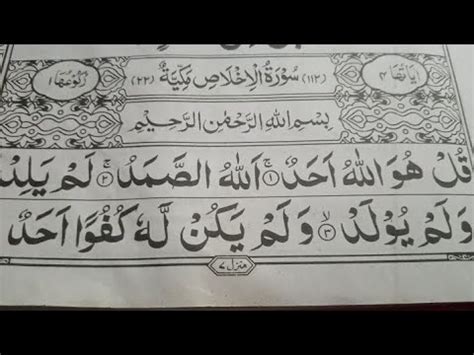 اٰیَاتُهَا ۴ (۱۱۲) سُوْرَةُ الْاِخْلَاصِ مَكِّیَّةٌ (۲۲) رُكُوْعُهَا ۱
بِسْمِ اللهِ الرَّحْمٰنِ الرَّحِیْمِ
قُلْ هُوَ اللهُ اَحَدٌ ۚ‏ ۱ اَللهُ الصَّمَدُ ۚ‏ ۲ لَمْ یَلِدْ
وَلَمْ یُوْلَدْ ۙ‏ ۳ وَلَمْ یَكُنْ لَّهٗ كُفُوًا اَحَدٌ
منزل ۷